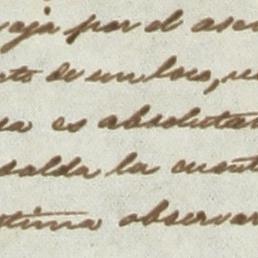 aja por el ase
te de un loco, u
a es absoluta
salda la cuent
stima observar